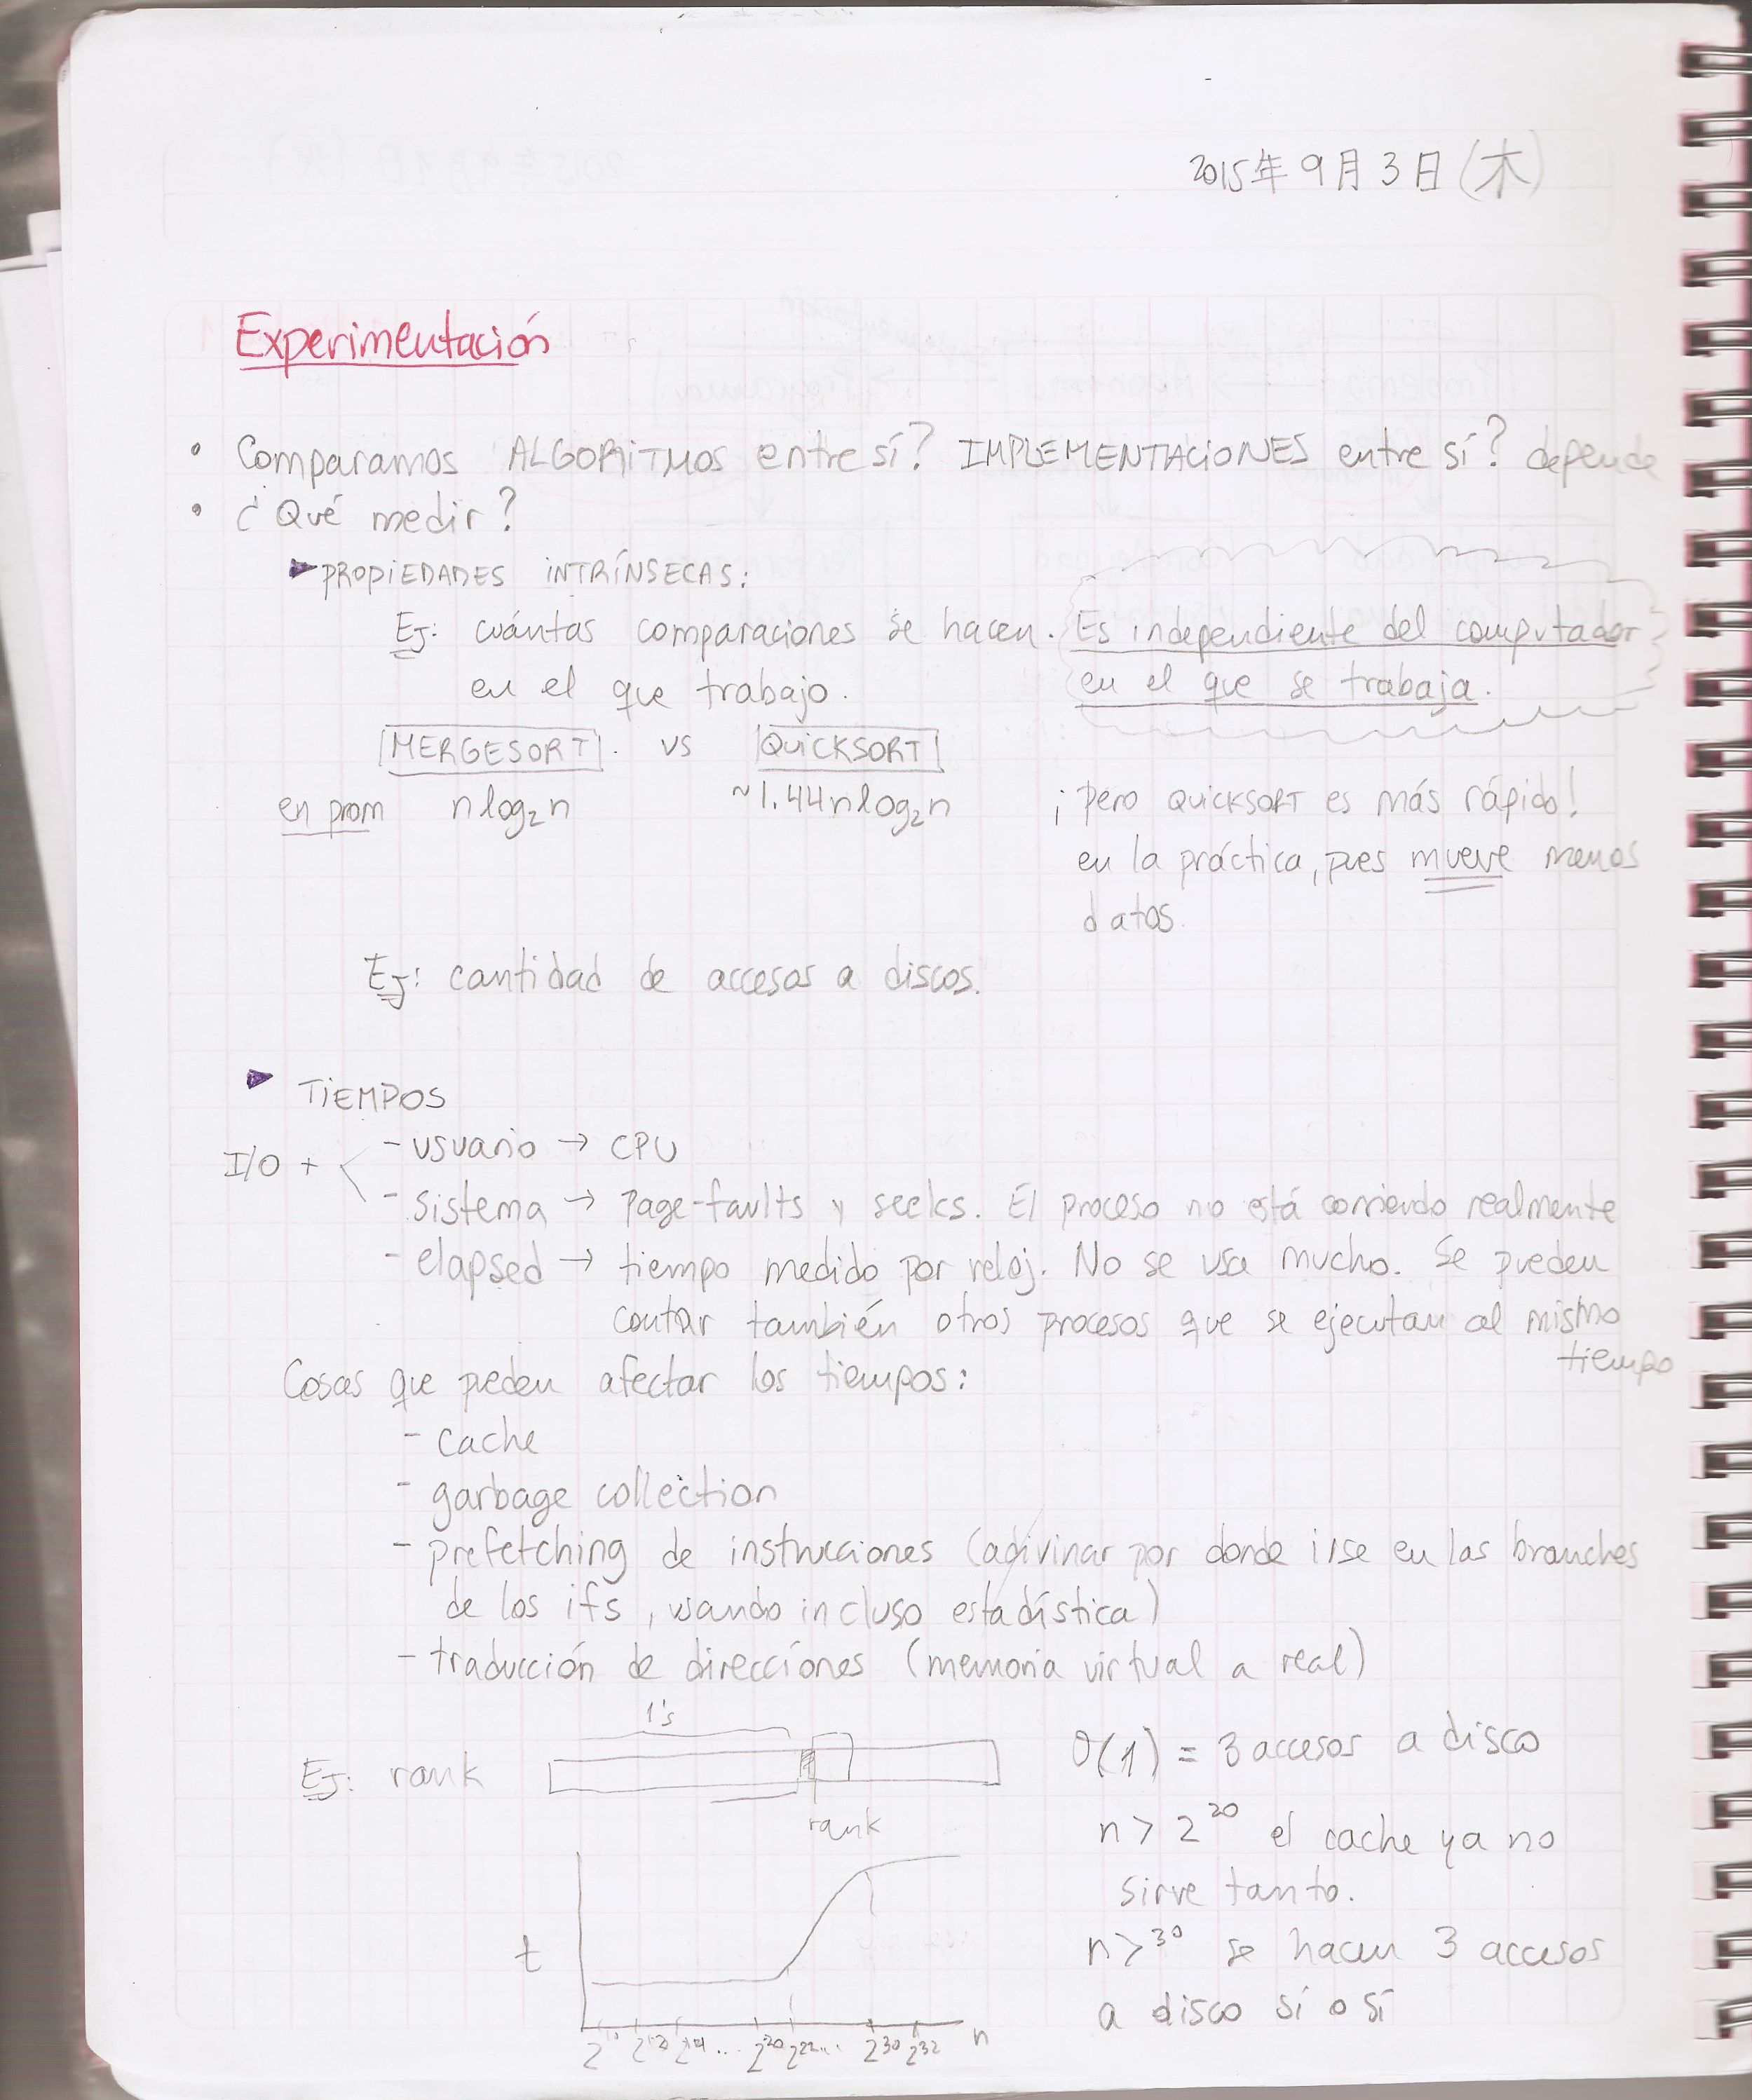 2015年9月3日(木)
Experimentación
• Comparamos ALGORITMOS entre sí? IMPLEMENTACIONES entre sí? depende
• ¿Qué medir?
▶ PROPIEDADES INTRÍNSECAS:
Ej: cuántas comparaciones se hacen. Es independiente del computador
en el que trabajo. en el que se trabaja.
MERGESORT. vs QUICKSORT
en prom n log₂n ~1.44n log₂n ¡Pero QUICKSORT es más rápido!
en la práctica, pues mueve menos
datos.
Ej: cantidad de accesos a discos.
▶ TIEMPOS
I/O + - usuario → CPU
- sistema → page-faults y seeks. El proceso no está corriendo realmente
- elapsed → tiempo medido por reloj. No se usa mucho. Se pueden
contar también otros procesos que se ejecutan al mismo
tiempo
Cosas que pueden afectar los tiempos:
- cache
- garbage collection
- prefetching de instrucciones (adivinar por donde irse en las branches
de los ifs, usando incluso estadística)
- traducción de direcciones (memoria virtual a real)
1's
Ej: rank
rank
O(1) = 3 accesos a disco
n > 2²⁰ el cache ya no
sirve tanto.
n > ³⁰ se hacen 3 accesos
a disco sí o sí
t
2¹⁰ 2¹² 2¹⁴ ... 2²⁰ 2²² ... 2³⁰ 2³² n